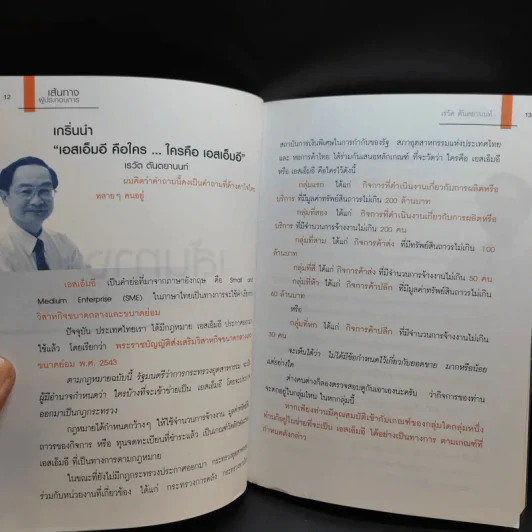 12
เส้นทาง
ผู้ประกอบการ
เกริ่นนำ
"เอสเอ็มอี คือใคร ... ใครคือ เอสเอ็มอี"
เรวัต ตันตยานนท์
ผมคิดว่าคำถามนี้คงเป็นคำถามที่ค้างคาใจใคร
หลายๆ คนอยู่
เอสเอ็มอี เป็นคำย่อที่มาจากภาษาอังกฤษ คือ Small and
Medium Enterprise (SME) ในภาษาไทยเป็นทางการจะใช้คำเรียกว่า
วิสาหกิจขนาดกลางและขนาดย่อม
ปัจจุบัน ประเทศไทยเรา ได้มีกฎหมาย เอสเอ็มอี ประกาศออกมา
ใช้แล้ว โดยเรียกว่า พระราชบัญญัติส่งเสริมวิสาหกิจขนาดกลางและ
ขนาดย่อม พ.ศ. 2543
ตามกฎหมายฉบับนี้ รัฐมนตรีว่าการกระทรวงอุตสาหกรรม จะเป็น
ผู้มีอำนาจกำหนดว่า ใครบ้างที่จะเข้าข่ายเป็น เอสเอ็มอี โดยจะประกาศ
ออกมาเป็นกฎกระทรวง
กฎหมายได้กำหนดกว้างๆ ให้ใช้จำนวนการจ้างงาน มูลค่าสินทรัพย์
ถาวรของกิจการ หรือ ทุนจดทะเบียนที่ชำระแล้ว เป็นเกณฑ์วัด
เอสเอ็มอี ที่เป็นทางการตามกฎหมาย
ในขณะที่ยังไม่มีกฎกระทรวงประกาศออกมา กระทรวงอุตสาหกรรม
ร่วมกับหน่วยงานที่เกี่ยวข้อง ได้แก่ กระทรวงการคลัง
เรวัต ตันตยานนท์
13
สถาบันการเงินพิเศษในการกำกับของรัฐ สภาอุตสาหกรรมแห่งประเทศไทย
และ หอการค้าไทย ได้ร่วมกันเสนอหลักเกณฑ์ ที่จะวัดว่า ใครคือ เอสเอ็มอี
หรือ เอสเอ็มอี คือใครไว้ดังนี้
กลุ่มแรก ได้แก่ กิจการที่ดำเนินงานเกี่ยวกับการผลิตหรือ
บริการ ที่มีมูลค่าทรัพย์สินถาวรไม่เกิน 200 ล้านบาท
กลุ่มที่สอง ได้แก่ กิจการที่ดำเนินงานเกี่ยวกับการผลิตหรือ
บริการ ที่มีจำนวนการจ้างงานไม่เกิน 200 คน
กลุ่มที่สาม ได้แก่ กิจการค้าส่ง ที่มีทรัพย์สินถาวรไม่เกิน 100
ล้านบาท
กลุ่มที่สี่ ได้แก่ กิจการค้าส่ง ที่มีจำนวนการจ้างงานไม่เกิน 50 คน
กลุ่มที่ห้า ได้แก่ กิจการค้าปลีก ที่มีมูลค่าทรัพย์สินถาวรไม่เกิน
60 ล้านบาท
หรือ
กลุ่มที่หก ได้แก่ กิจการค้าปลีก ที่มีจำนวนการจ้างงานไม่เกิน
30 คน
จะเห็นได้ว่า ไม่ได้มีข้อกำหนดไว้เกี่ยวกับยอดขาย มากหรือน้อย
แต่อย่างใด
ต่างคนต่างก็ลองตรวจสอบดูกันเอาเองนะครับ ว่ากิจการของท่าน
จะตกอยู่ในกลุ่มไหน ในหกกลุ่มนี้
หากเพียงท่านมีคุณสมบัติเข้ากับเกณฑ์ของกลุ่มใดกลุ่มหนึ่ง
ท่านก็อยู่ในข่ายที่จะเป็น เอสเอ็มอี ได้อย่างเป็นทางการ ตามเกณฑ์ที่
กำหนดดังกล่าว